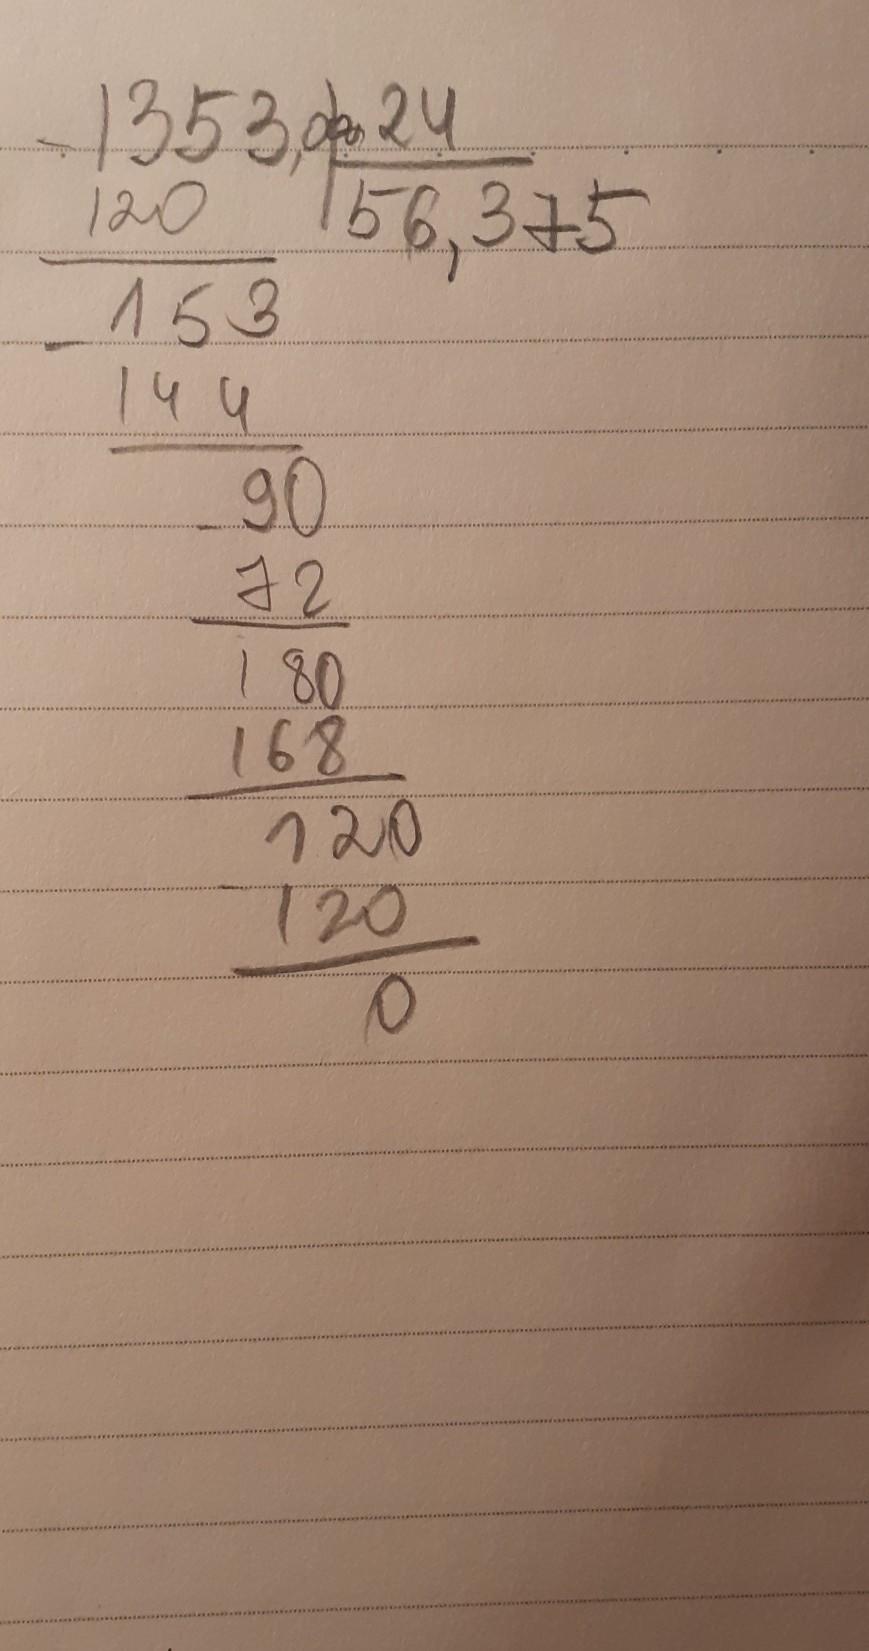 - 1353, 24
120 56,375
153
- 144
90
- 72
180
168
120
- 120
0